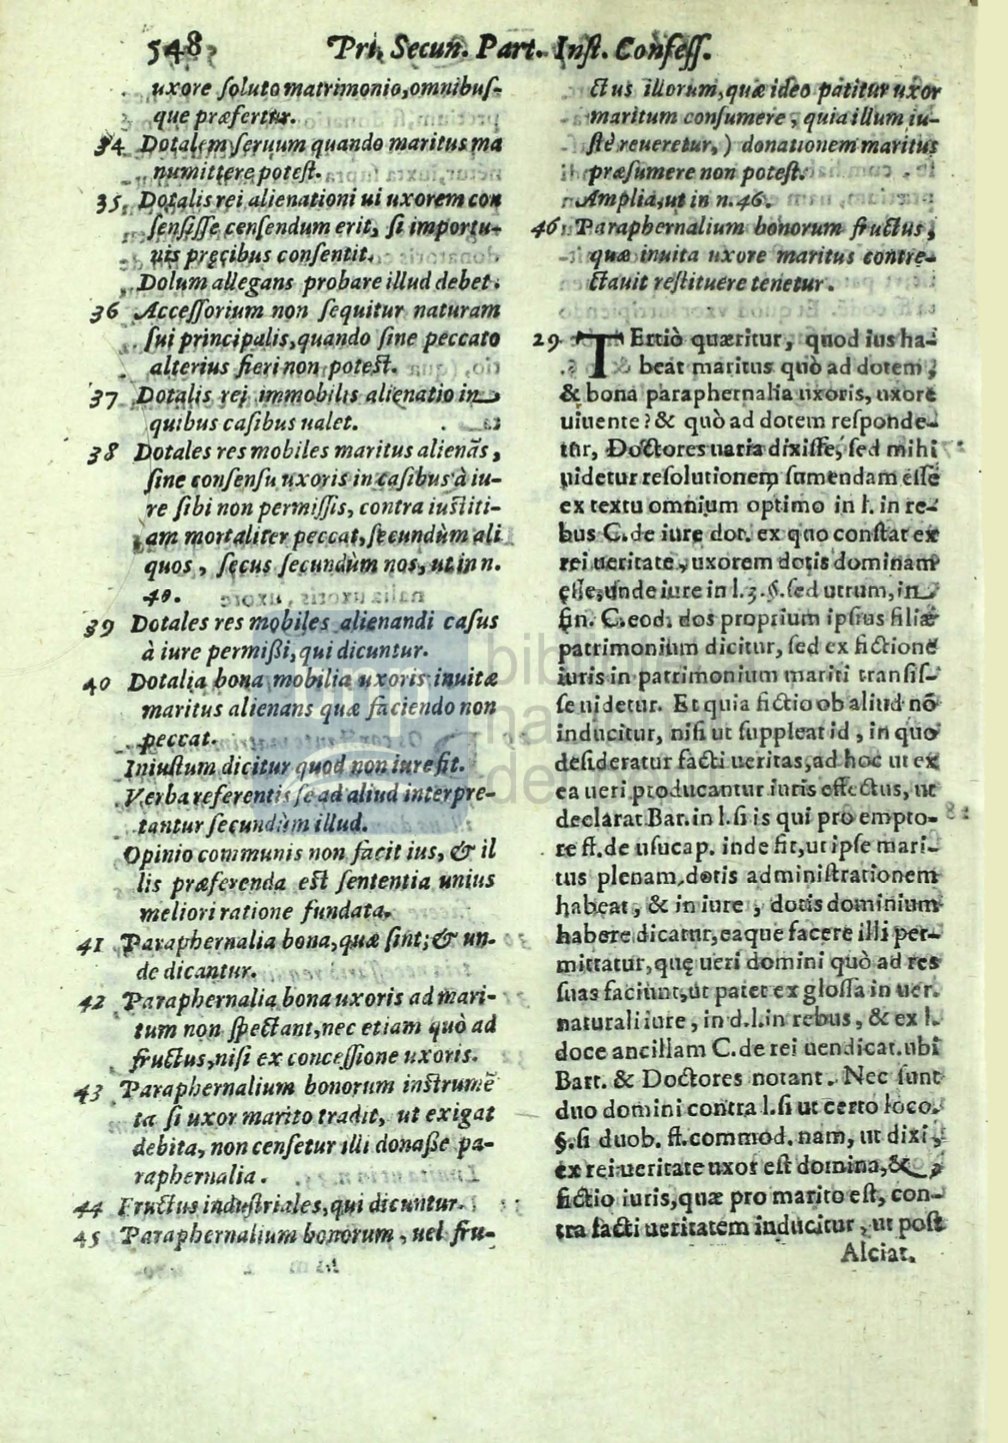 548 Pri. Secun. Part. Inst. Confess.
uxore ſoluto matrimonio, omnibuſ-
que præfertur.
34 Dotalem ſeruum quando maritus ma
numittere poteſt.
35 Dotalis rei alienationi ui uxorem con
ſenſiſſe cenſendum erit, ſi importu-
nis precibus conſentit.
Dolum allegans probare illud debet.
36 Acceſſorium non ſequitur naturam
ſui principalis, quando ſine peccato
alterius fieri non poteſt.
37 Dotalis rei immobilis alienatio in
quibus caſibus ualet.
38 Dotales res mobiles maritus alienãs,
ſine conſenſu uxoris in caſibus à iu-
re ſibi non permiſſis, contra iuſtiti-
am mortaliter peccat, ſecundùm ali
quos, ſecus ſecundùm nos, ut in n.
40.
39 Dotales res mobiles alienandi caſus
à iure permißi, qui dicuntur.
40 Dotalia bona mobilia uxoris inuitæ
maritus alienans quæ faciendo non
peccat.
Iniuſtum dicitur quod non iure fit.
Verba referentis ſe ad aliud interpre-
tantur ſecundùm illud.
Opinio communis non facit ius, & il
lis præferenda eſt ſententia unius
meliori ratione fundata.
41 Paraphernalia bona, quæ ſint; & un-
de dicantur.
42 Paraphernalia bona uxoris ad mari-
tum non ſpectant, nec etiam quò ad
fructus, niſi ex conceſſione uxoris.
43 Paraphernalium bonorum inſtrumẽ
ta ſi uxor marito tradit, ut exigat
debita, non cenſetur illi donaße pa-
raphernalia.
44 Fructus induſtriales, qui dicuntur.
45 Paraphernalium bonorum, uel fru-
ctus illorum, quæ ideo patitur uxor
maritum conſumere, quia illum iu-
ſtè reueretur,) donationem maritus
præſumere non poteſt.
Amplia, ut in n. 46.
46 Paraphernalium bonorum fructus,
quæ inuita uxore maritus contre-
ctauit reſtituere tenetur.
29 TErtiò quæritur, quod ius ha-
beat maritus quò ad dotem,
& bona paraphernalia uxoris, uxore
uiuente? & quò ad dotem reſponde-
tur, Doctores uaria dixiſſe, ſed mihi
uidetur reſolutionem ſumendam eſſe
ex textu omnium optimo in l. in re-
bus C. de iure dot. ex quo conſtat ex
rei ueritate, uxorem dotis dominam
eſſe, unde iure in l. 3. §. ſed utrum, in
fin. C. eod. dos proprium ipſius filiæ
patrimonium dicitur, ſed ex fictione
iuris in patrimonium mariti tranſiſ-
ſe uidetur. Et quia fictio ob aliud nõ
inducitur, niſi ut ſuppleat id, in quo
deſideratur facti ueritas, ad hoc ut ex
ea ueri producantur iuris effectus, ut
declarat Bar. in l. ſi is qui pro empto-
re ff. de uſucap. inde fit, ut ipſe mari-
tus plenam dotis adminiſtrationem
habeat, & in iure, dotis dominium
habere dicatur, eaque facere illi per-
mittatur, quę ueri domini quò ad res
ſuas faciunt, ut patet ex gloſſa in uer.
naturali iure, in d. l. in rebus, & ex l.
doce ancillam C. de rei uendicat. ubi
Bart. & Doctores notant. Nec ſunt
duo domini contra l. ſi ut certo loco.
§. ſi duob. ff. commod. nam, ut dixi,
ex rei ueritate uxor eſt domina, &
fictio iuris, quæ pro marito eſt, con-
tra facti ueritatem inducitur, ut poſt
Alciat.